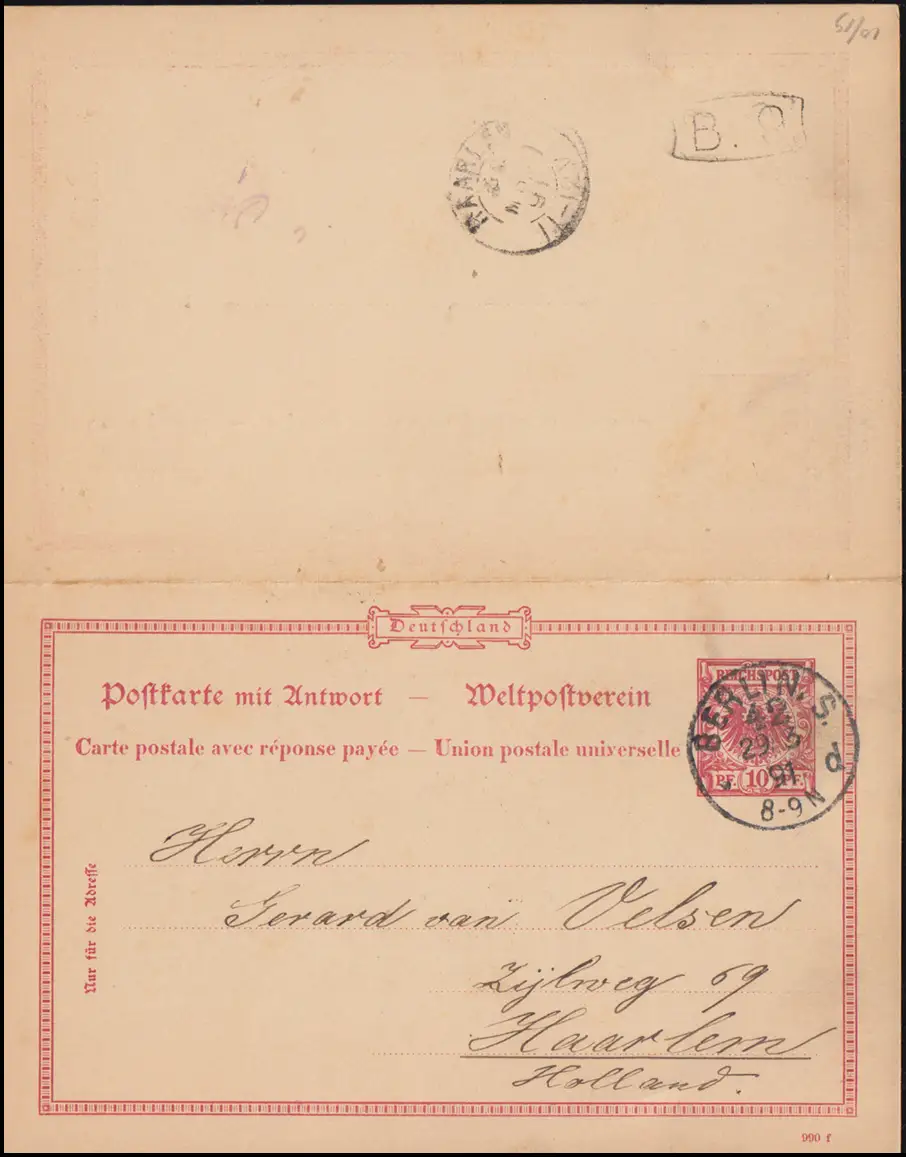 51/01
B. P
HAARLEM
Deutschland
Postkarte mit Antwort — Weltpostverein
Carte postale avec réponse payée — Union postale universelle
REICHSPOST
PF. 10 PF.
BERLIN, S.
42
29 3
91
8-9 N
d
Herrn
Gerard van Velsen
Zijlweg 69
Haarlem
Holland.
Nur für die Adresse
990 f